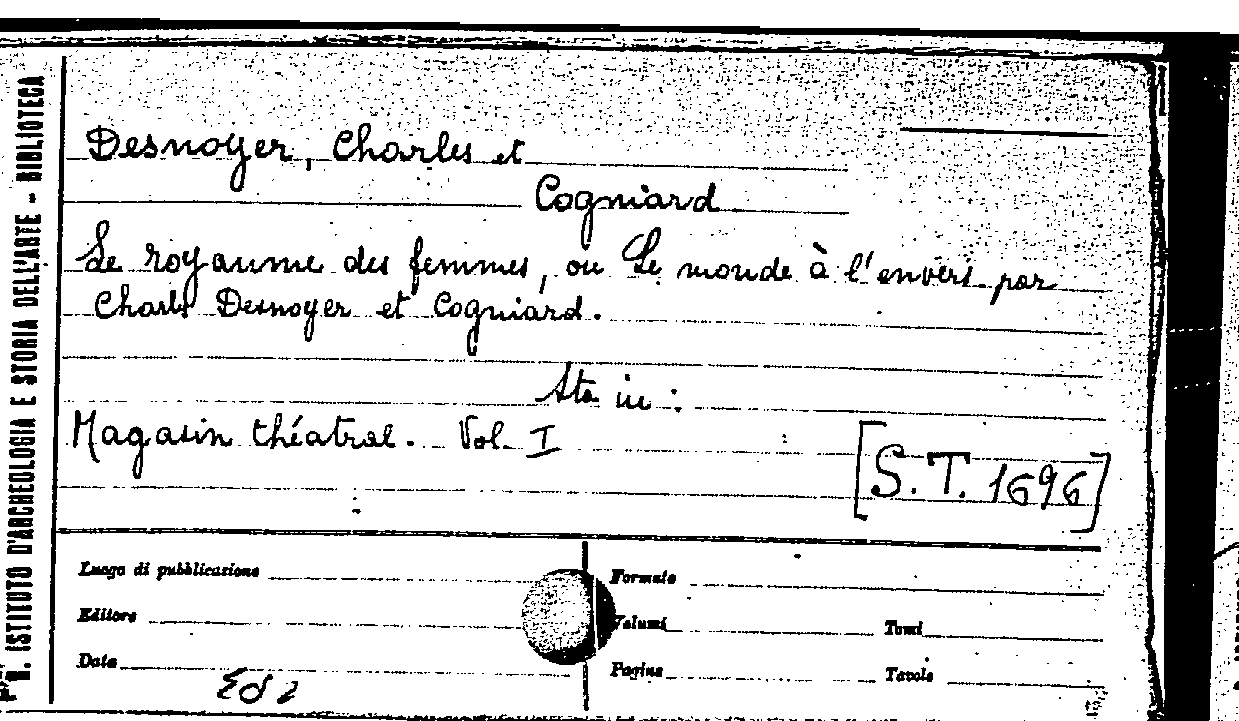 R. ISTITUTO D'ARCHEOLOGIA E STORIA DELL'ARTE - BIBLIOTECA
Desnoyer, Charles et
Cogniard
Le royaume des femmes, ou Le monde à l'envers par
Charles Desnoyer et Cogniard.
Sta in :
Magasin théatral. Vol. I
[S.T. 1696]
Luogo di pubblicazione
Formato
Editore
Volumi
Tomi
Data
Pagine
Tavole